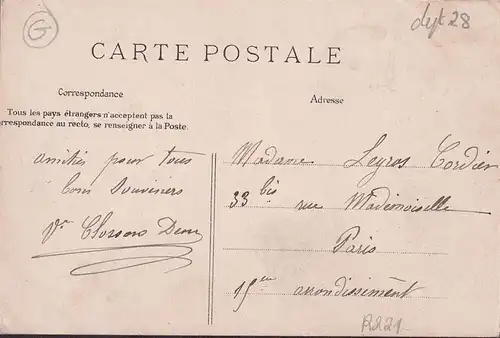 G
dyt 28
CARTE POSTALE
Correspondance
Adresse
Tous les pays étrangers n'acceptent pas la
correspondance au recto, se renseigner à la Poste.
amitiés pour tous
bons souvenirs
Madame Leyros Cordier
33 bis rue Mademoiselle
Paris
15ème arrondissement
R221